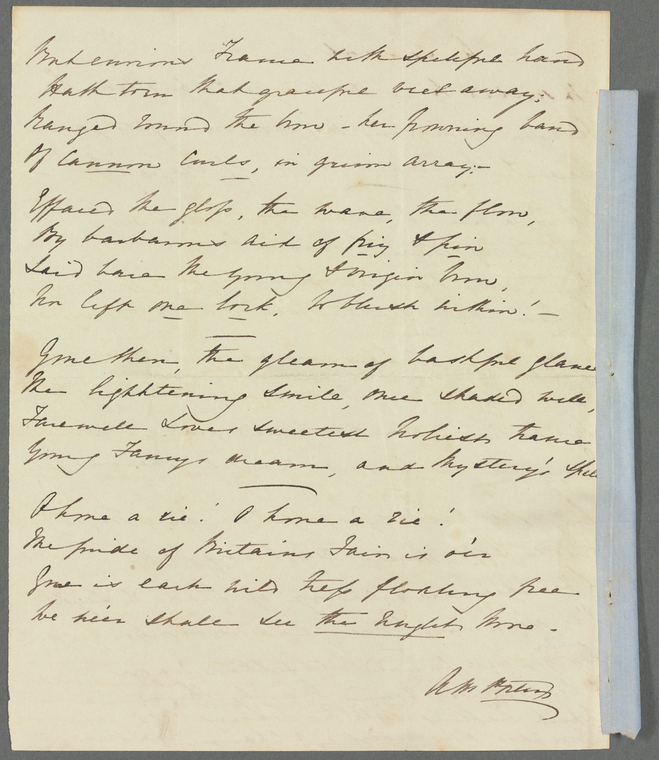 But envious France with spiteful hand
Hath torn that graceful veil away;
Ranged round the brow - her frowning band
Of Cannon Curls, in grim array:-
Effaced the gloss, the wave, the flow,
By barbarous aid of friz & pin
Laid bare the young & virgin brow,
Nor left one lock, to blush within! -
Gone then, the gleam of bashful glance
The lightening smile, once shaded well,
Farewell Loves sweetest holiest trance
Young Fancys dream, and Mystery's Spell
O hone a rie! O hone a rie!
The pride of Britains Fair is o'er
Gone is each wild tress floating free
We ne'er shall see the Ringlets more -